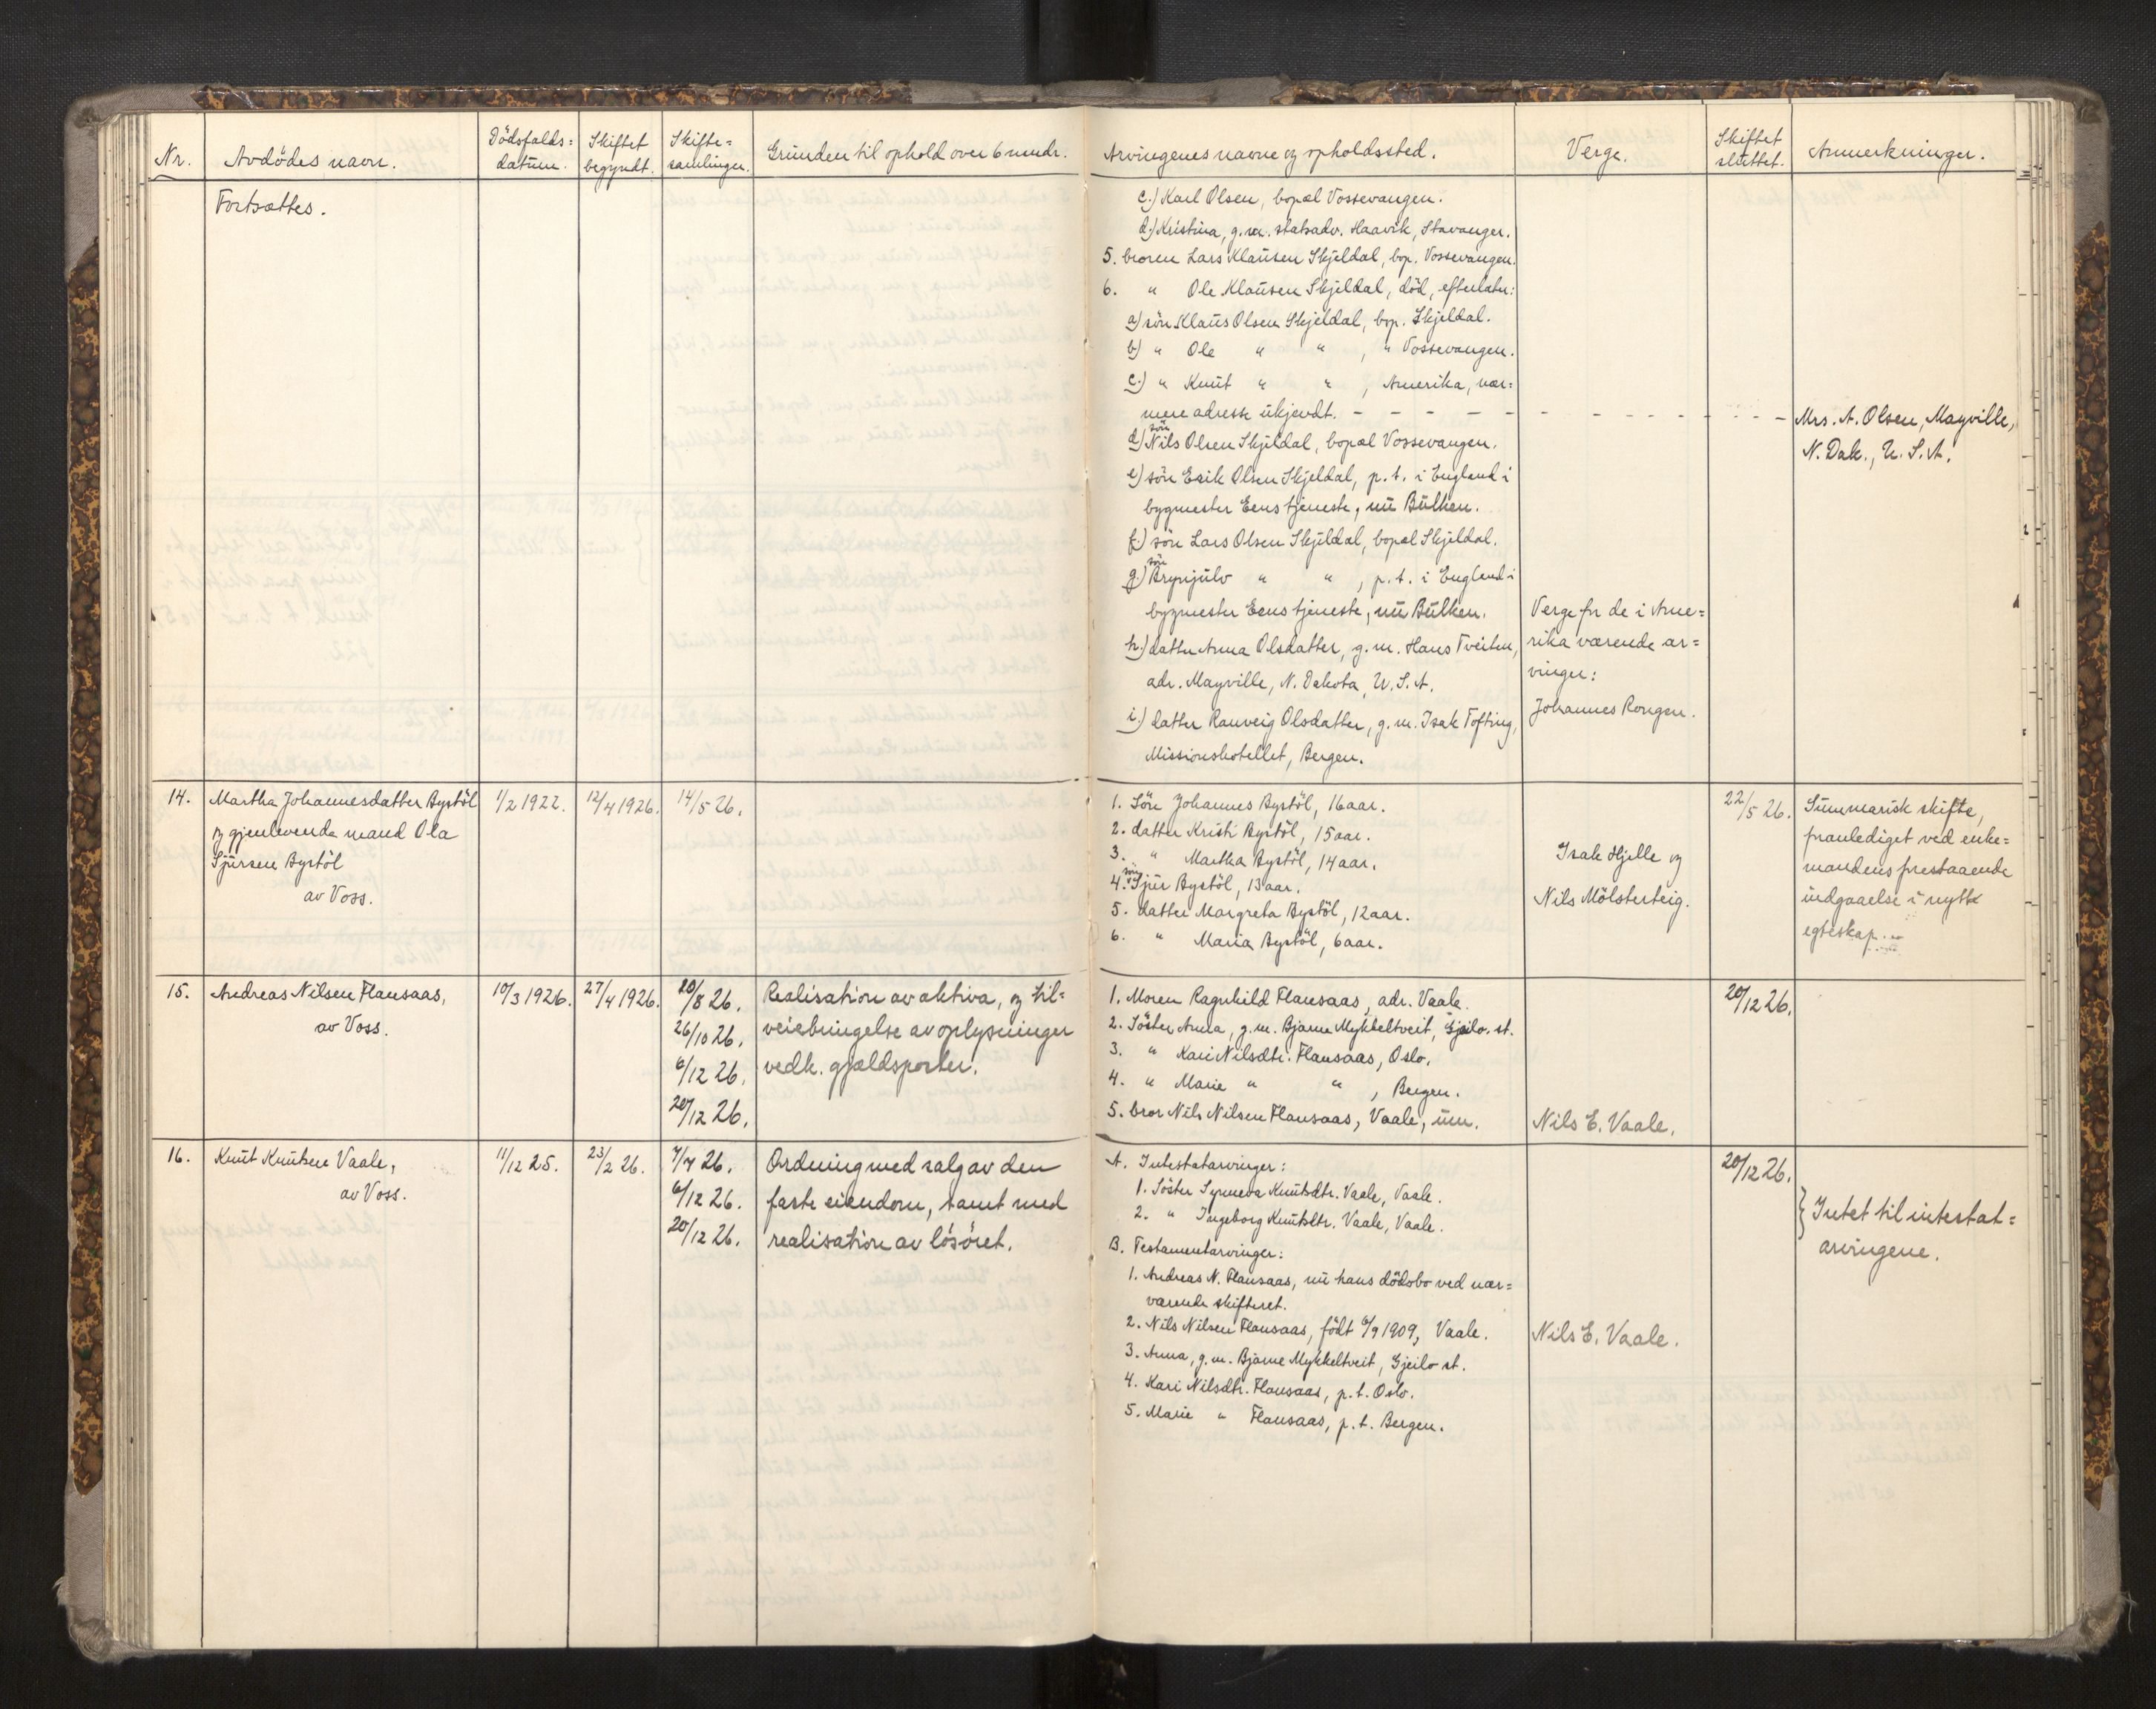 Nr.
Avdödes navn.
Dödsfalds=
datum.
Skiftet
begyndt.
Skifte=
samlinger.
Grunden til ophold over 6 mndr.
Arvingenes navne og opholdssted.
Verge.
Skiftet
sluttet.
Anmerkninger.
Fortsættes.
c.) Karl Olsen, bopæl Vossevangen.
d.) Kristina, g.m. statsadv. Haavik, Stavanger.
5. broren Lars Klausen Skjeldal, bop. Vossevangen.
6. " Ole Klausen Skjeldal, död, efterlater:
a) sön Klaus Olsen Skjeldal, bop. Skjeldal.
b) " Ole " " , " Vossevangen.
c.) " Knut " " , Amerika, nær=
mere adresse ukjendt. - - - - - - - - - - - -
Mrs. A. Olsen, Mayville,
N. Dak., U. S. A.
sön
d) Nils Olsen Skjeldal, bopæl Vossevangen.
e) sön Erik Olsen Skjeldal, p.t. i England i
bygmester Eens tjeneste, nu Bulken.
f.) sön Lars Olsen Skjeldal, bopæl Skjeldal.
sön
g.) Brynjulv " " , p.t. i England i
bygmester Eens tjeneste, nu Bulken.
h.) datter Anna Olsdatter, g.m. Hans Tveiten,
adr. Mayville, N. Dakota, U. S. A.
i.) datter Ranveig Olsdatter, g.m. Isak Tofting,
Missionshotellet, Bergen.
Verge for de i Ame=
rika værende ar=
vinger:
Johannes Rongen.
14.
Martha Johannesdatter Bystöl
og gjenlevende mand Ola
Sjursen Bystöl
av Voss.
1/2 1922.
12/4 1926.
14/5 26.
1. Sön Johannes Bystöl, 16 aar.
2. datter Kristi Bystöl, 15 aar.
3. " Martha Bystöl, 14 aar.
sön
4. Sjur Bystöl, 13 aar.
5. datter Margreta Bystöl, 12 aar.
6. " Maria Bystöl, 6 aar.
Isak Hjelle og
Nils Mölsterteig.
22/5 26.
Summarisk skifte,
foranlediget ved enke=
mandens forestaaende
indgaaelse i nytt
egteskap.
15.
Andreas Nilsen Flausaas,
av Voss.
10/3 1926.
27/4 1926.
20/8 26.
26/10 26.
6/12 26.
20/12 26.
Realisation av aktiva, og til=
veiebringelse av oplysninger
vedk. gjældsposter.
1. Moren Ragnhild Flausaas, adr. Vaale.
2. Söster Anna, g.m. Bjarne Mykkeltveit, Gjeilo st.
3. " Kari Nilsdtr. Flausaas, Oslo.
4. " Marie " " , Bergen.
5. bror Nils Nilsen Flausaas, Vaale, um.
Nils E. Vaale.
20/12 26.
16.
Knut Knutsen Vaale,
av Voss.
11/12 25.
23/2 26.
7/7 26.
6/12 26.
20/12 26.
Ordning med salg av den
faste eiendom, samt med
realisation av lösöret.
A. Intestatarvinger:
1. Söster Synneva Knutsdtr. Vaale, Vaale.
2. " Ingeborg Knutsdtr. Vaale, Vaale.
B. Testamentarvinger:
1. Andreas N. Flausaas, nu hans dödsbo ved nær=
værende skifteret.
2. Nils Nilsen Flausaas, födt 6/9 1909, Vaale.
3. Anna, g.m. Bjarne Mykkeltveit, Gjeilo st.
4. Kari Nilsdtr. Flausaas, p.t. Oslo.
5. Marie " Flausaas, p.t. Bergen.
Nils E. Vaale.
20/12 26.
Intet til intestat=
arvingene.